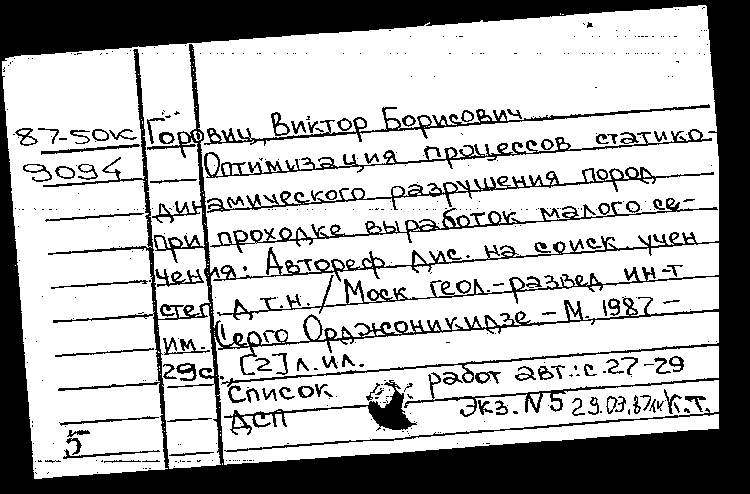 87-50к Горовиц, Виктор Борисович
9094 Оптимизация процессов статико-
динамического разрушения пород
при проходке выработок малого се-
чения: Автореф. дис. на соиск. учен
степ. д.т.н. / Моск. геол.-развед ин-т
им. Серго Орджоникидзе - М., 1987 -
29с., [2] л. ил.
Список работ авт.: с. 27-29
ДСП Экз. N5 29.09.87 К.Т.
5